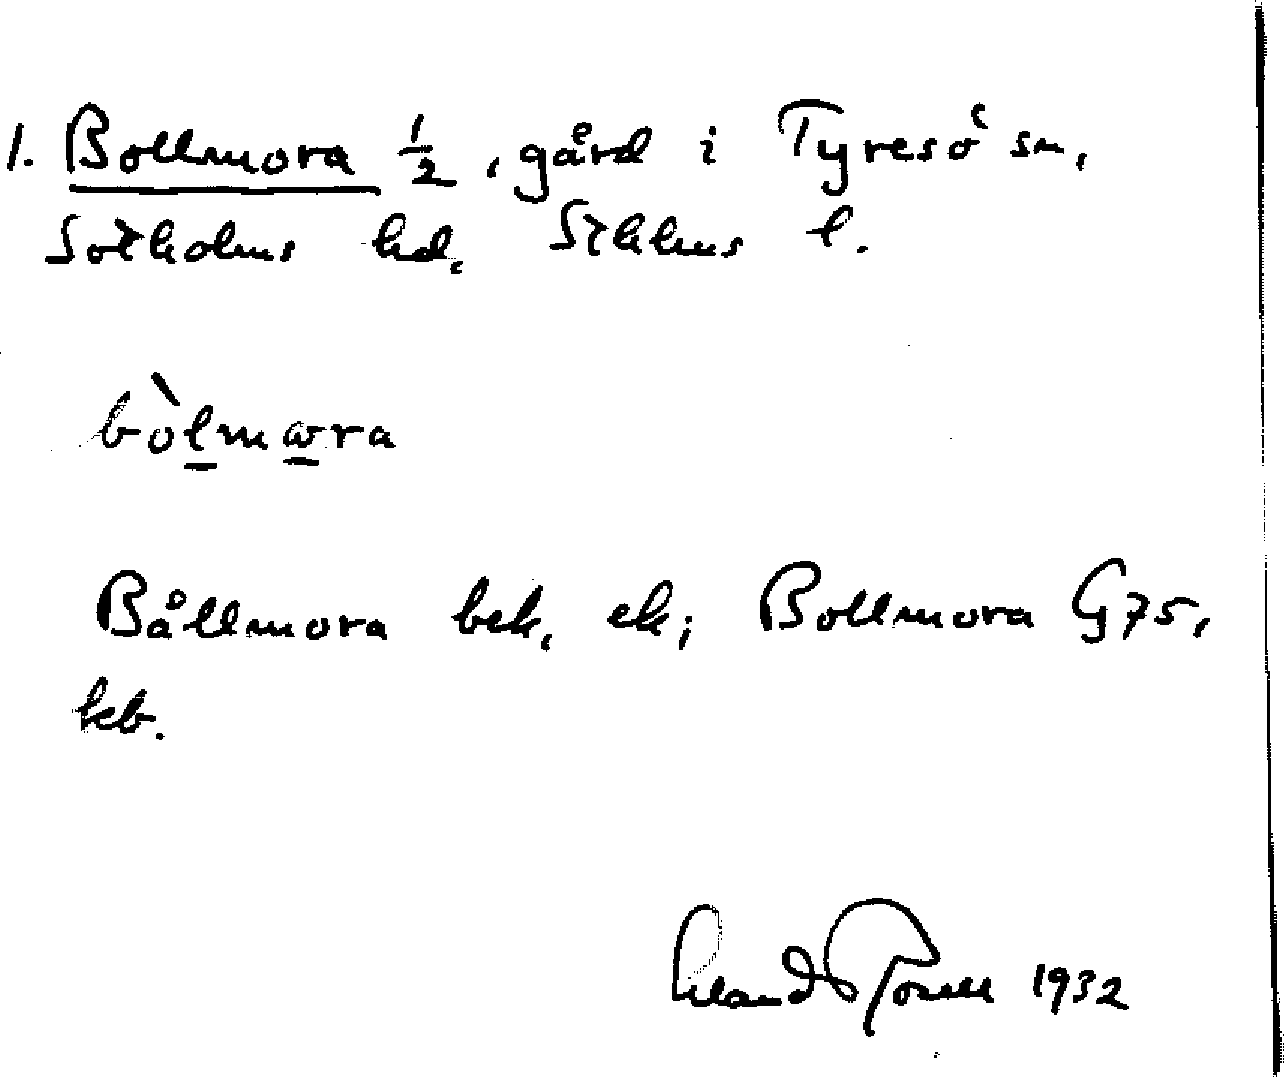 1. Bollmora ½, gård i Tyresö sn,
Sotholms hd. Sthlms l.
bòlmωra
Bållmora bek. ek; Bollmora G75,
kb.
1932